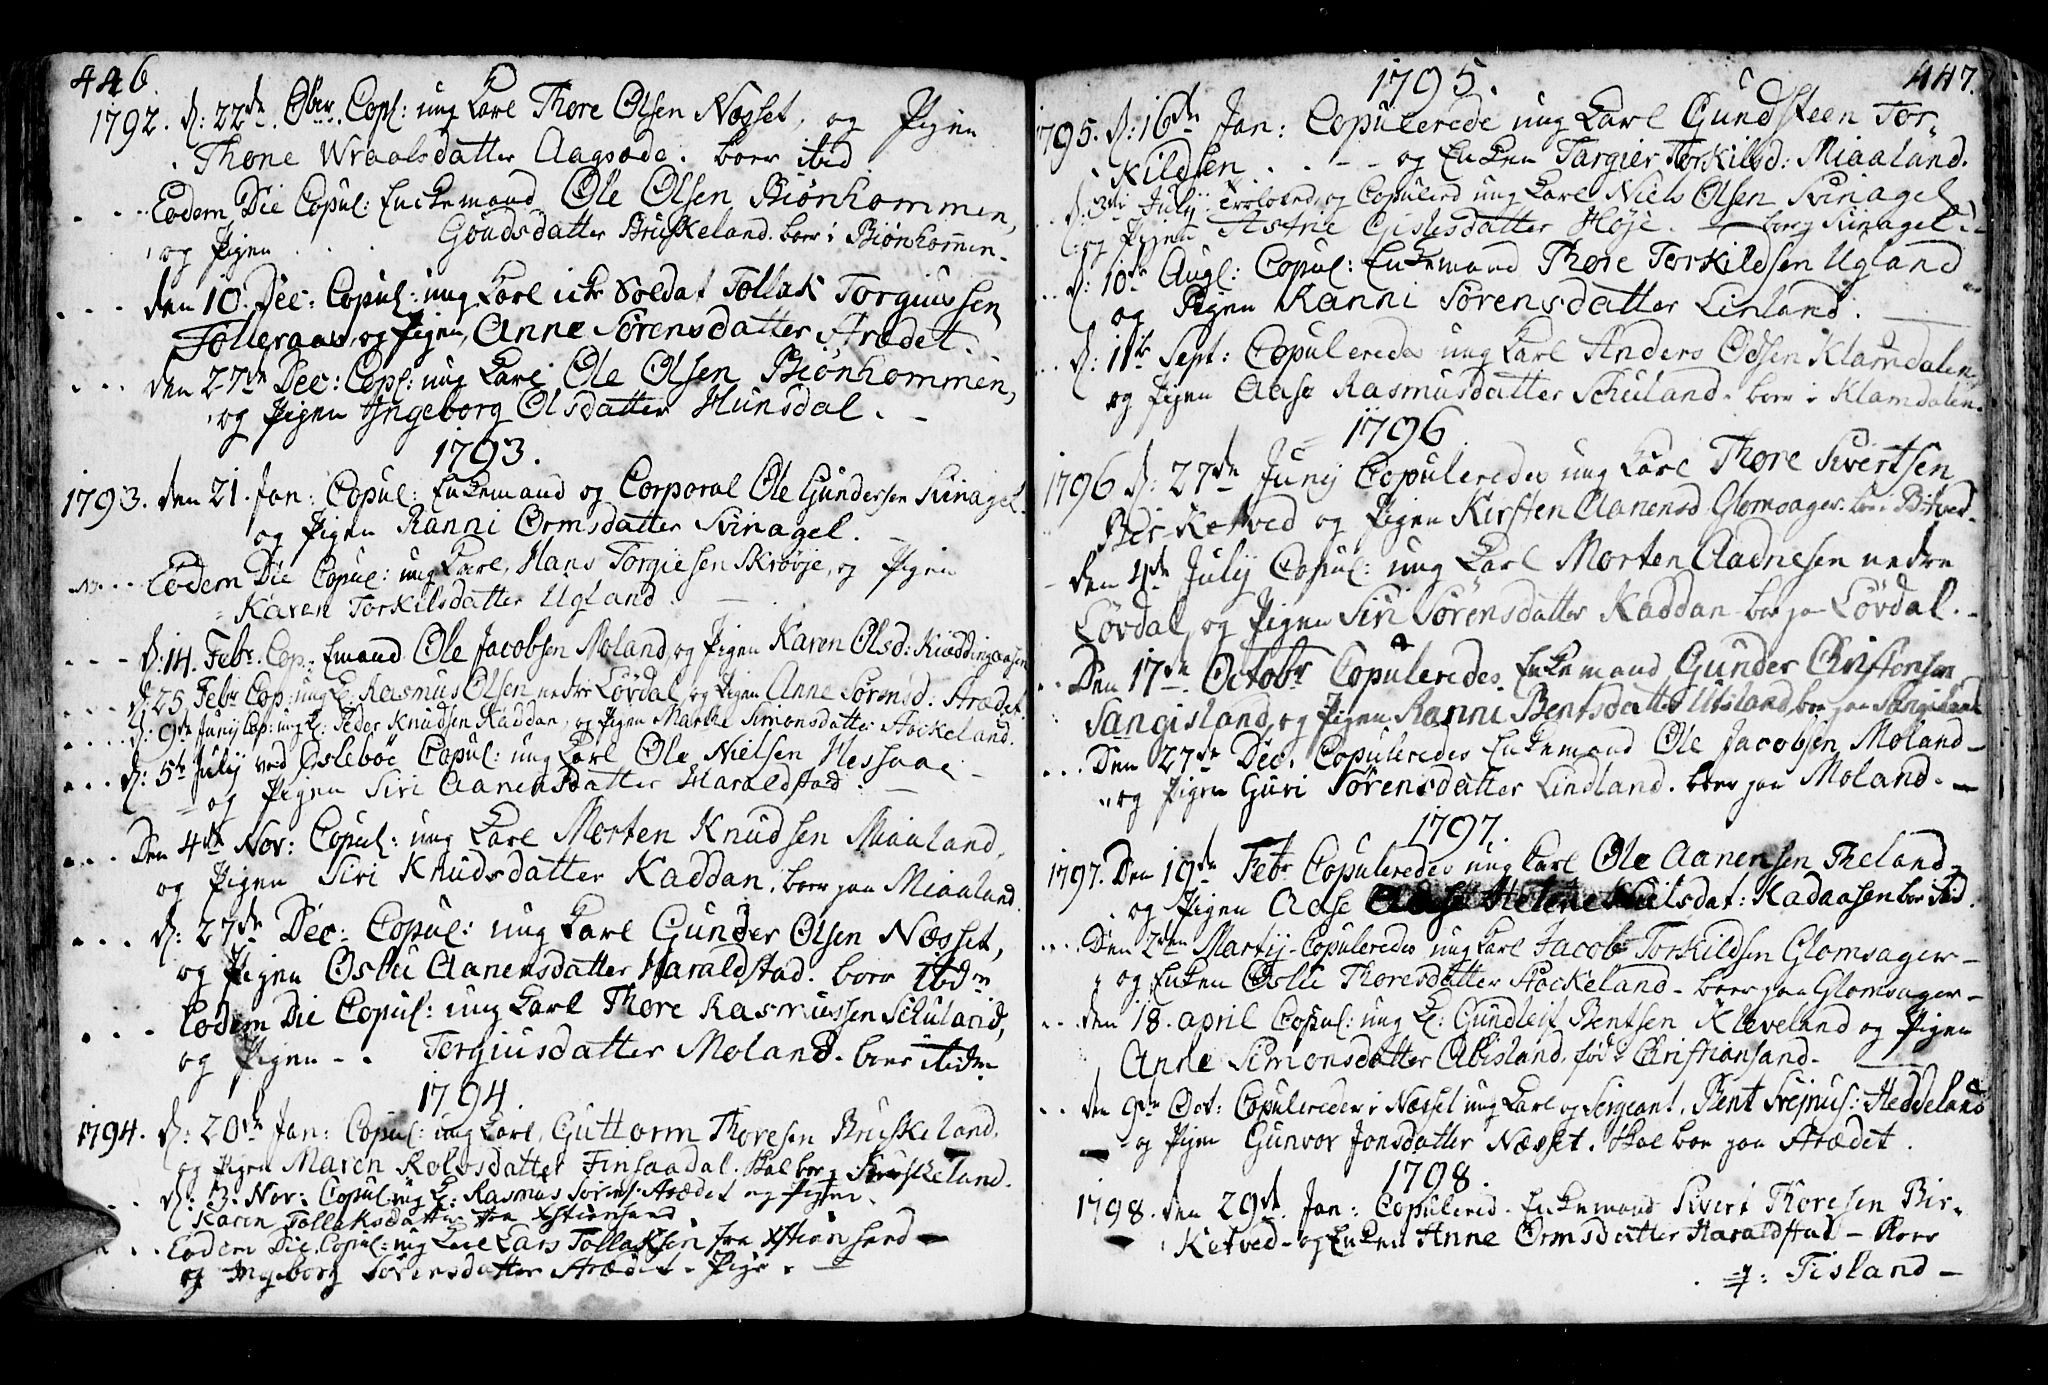 446.
1792. d: 22de Obr. Cop: ung Karl Thore Olsen Næsset, og Pigen
Thone Wraalsdatter Aagsøde. boer ibid
Eodem Die Copul: Enkemand Ole Olsen Biønhommen,
og Pigen . . Goudsdatter Bruskeland. boer i Biønhommen.
den 10. Dec: Copul: ung Karl Soldat Tollak Torgiussen
Tolleraas og Pigen, Anne Sørensdatter Strædet.
den 27de Dec: Cop: ung Karl Ole Olsen Biønhommen,
og Pigen Ingeborg Olsdatter Hunsdal.
1793.
1793. den 21. Jan: Copul: Enkemand og Corporal Ole Gundersen Svinagel
og Pigen Ranni Ormsdatter Svinagel.
Eodem Die Copul: ung Karl, Hans Torgiesen Skrøvje, og Pigen
Karen Torkilsdatter Ugland.
d: 14. Febr. Cop: Emand Ole Jacobsen Moland, og Pigen Karen Olsd: Kieddingaasen
d: 25. Febr Cop: ung K: Rasmus Olsen nedre Løvdal og Pigen Anne Sørensd: Strædet.
d: 9de Junij Cop: ung K: Peder Knudsen Kaddan, og Pigen Marthe Simonsdatter Stockeland.
d: 5te July ved Øslebøe Copul: ung Karl Ole Nielsen Hessaae
og Pigen Siri Aanensdatter Haraldstad.
Den 4de Nov: Copul: ung Karl Morten Knudsen Miaaland,
og Pigen Siri Knudsdatter Kaddan. boer paa Miaaland.
d: 27de Dec: Copul: ung Karl Gunder Olsen Næsset,
og Pigen Oslu Aanensdatter Haraldstad. boer ibdm
Eodem Die Copul: ung Karl Thore Rasmussen Schuland,
og Pigen - . Torgiusdatter Moland. boer ibidm
1794.
1794. d: 20de Jan: Copul: ung Karl, Guttorm Thoresen Bruskeland.
og Pigen Maren Rolvsdatter Finsaadal. skal boe p Bruskeland.
d: 3. Nov: Copul: ung K: Rasmus Sørens: Strædet og Pigen
Karen Tollaksdatter fra Xstiansand
Eodem Die Copul: ung Karl Lars Tollaksen fra Xstiansand
og Ingeborg Sørensdatter Strædet - Pige.
447.
1795.
1795. d: 16de Jan: Copulerede ung Karl Gundsteen Tor-
kildsen . . - - og Enken Targier Torkilsd: Miaaland.
d: 3de July og Copulerd ung Karl Niels Olsen Svinagel
og Pigen Astrie Gislesdatter Høje. - boer Svinagel.
d: 10de Augl: Copul: Enkemand Thore Torkildsen Ugland
og Pigen Ranni Sørensdatter Linland.
d: 11te Sept: Copuleredes ung Karl Anders Olsen Klamdalen
og Pigen Aase Rasmusdatter Schuland. boer i Klamdalen.
1796
1796 d: 27de Junij Copuleredes ung Karl Thore Sivertsen
Bir-Ketved og Pigen Kirsten Aanensd Glomsager. boe i Birkved
den 4de July Copul: ung Karl Morten Aadnesen nedre
Løvdal, og Pigen Siri Sørensdatter Kaddan - boe paa Løvdal.
Den 17de Octobr Copuleredes Enkemand Gunder Christensen
Sangisland, og Pigen Ranni Bentsdatter Udsland, boe paa Sangisland
Den 27de Dec. Copuleredes Enkemand Ole Jacobsen Moland
og Pigen Guri Sørensdatter Lindland. boer paa Moland.
1797.
1797. Den 19de Febr Copuleredes ung Karl Ole Aanensen Theland
og Pigen Aase Helene Kielsdat: Kadaasen boe ibid.
Den 2den Martij Copuleredes ung Karl Jacob Torkildsen Glomsager
og Enken Oslu Thoresdatter Stockeland - boer paa Glomsager
den 18. april Copul: ung K: Gundleif Bentsen Kleveland og Pigen
Anne Simonsdatter Abisland, fød i Christiansand.
den 9de Oct: Copuleredes i Næsset ung Karl og Sergeant. Bent Svejnus: Heddeland
og Pigen Gunvor Jonsdatter Næsset. skal boe paa Strædet.
1798.
1798. den 29de Jan: Copulered. Enkemand Sivert Thoresen Bir-
Ketved - og Enken Anne Ormsdatter Haraldstad - Boer
p: Tisland